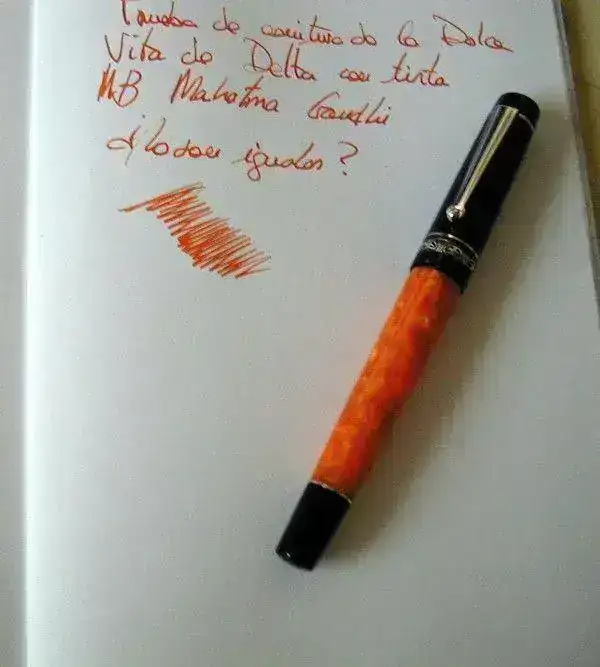 Prueba de escritura de la Dolce
Vita de Delta con tinta
MB Mahatma Gandhi
¿ iguales?